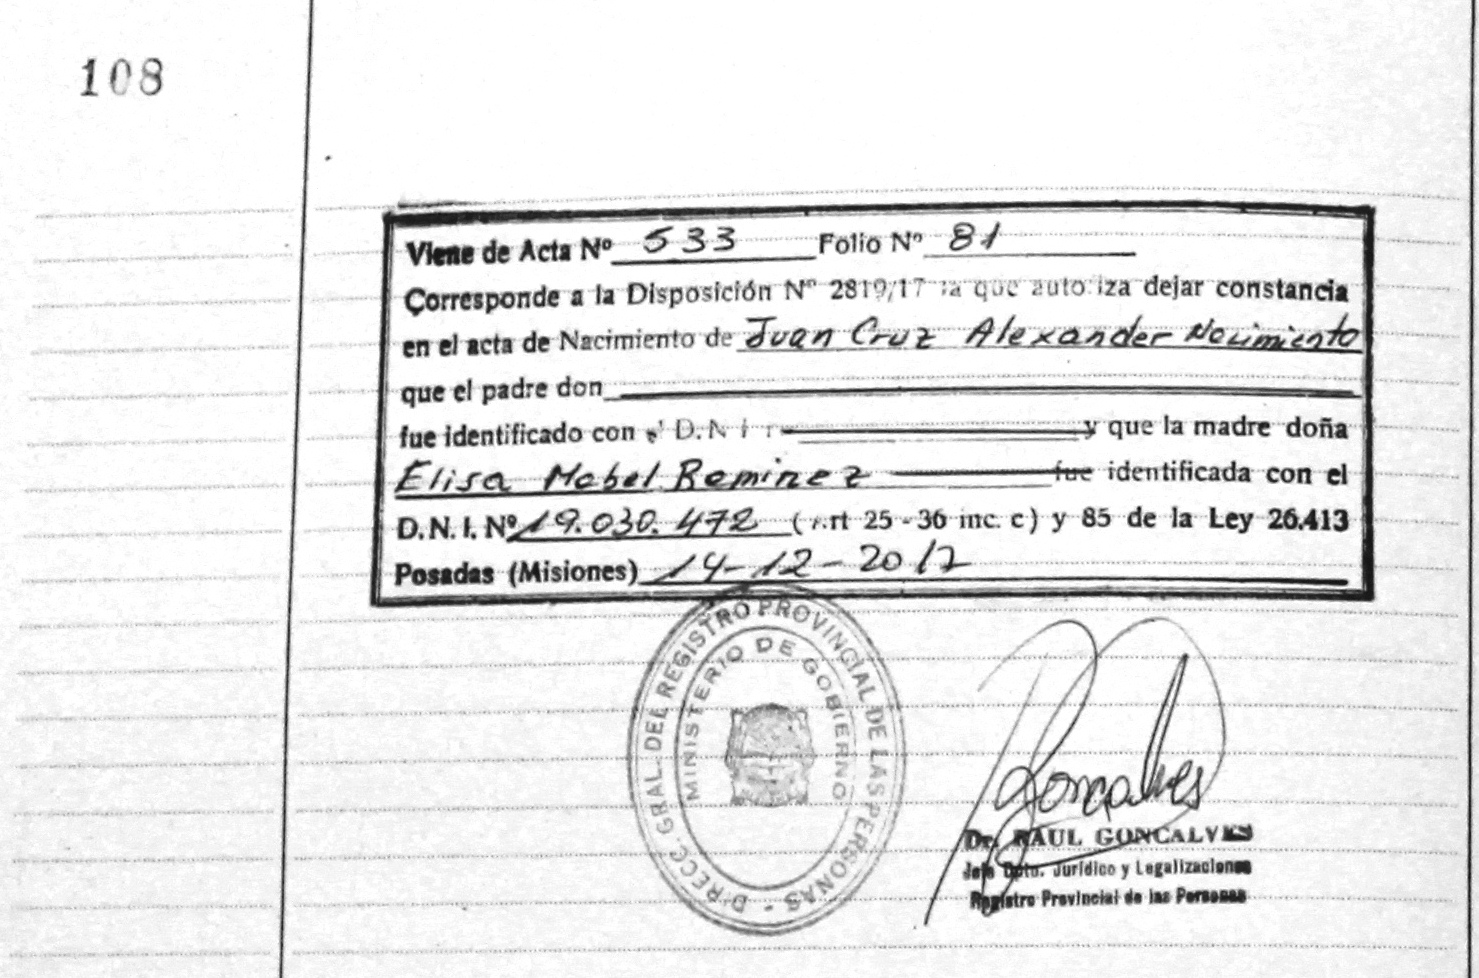 108
Viene de Acta Nº 533 Folio Nº 81
Corresponde a la Disposición Nº 2819/17 la que autoriza dejar constancia
en el acta de Nacimiento de Juan Cruz Alexander Nacimiento
que el padre don
fue identificado con el D.N.I. y que la madre doña
Elisa Mabel Ramirez fue identificada con el
D.N.I. Nº 19.030.472 (Art 25 - 36 inc. c) y 85 de la Ley 26.413
Posadas (Misiones) 14-12-2017
DIRECC. GRAL. DEL REGISTRO PROVINCIAL DE LAS PERSONAS -
MINISTERIO DE GOBIERNO
Gonçalves
Dr. RAUL GONCALVES
Jefe Dpto. Jurídico y Legalizaciones
Registro Provincial de las Personas